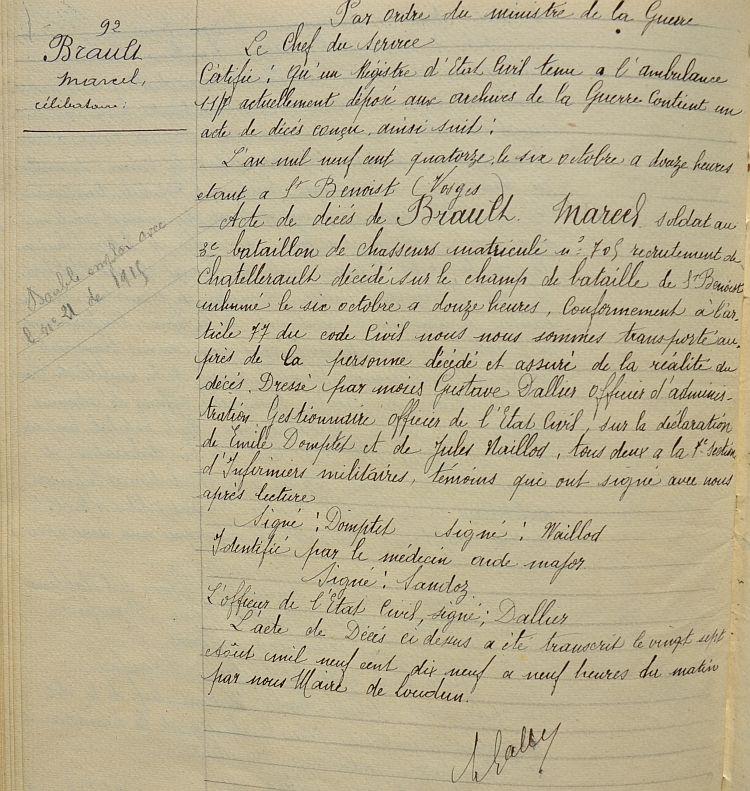 92
Brault
Marcel,
célibataire:
Double emploi avec
le n° 21 de 1915
Par ordre du ministre de la Guerre
Le Chef du Service
Certifie: Qu'un Régistre d'Etat Civil tenu a l'ambulance
actuellement déposé aux archives de la Guerre Contient un
acte de décès conçu, ainsi suit:
L'an mil neuf cent quatorze, le six octobre a douze heures
etant a St Benoist (Vosges)
Acte de décès de Brault Marcel soldat au
3e bataillon de chasseurs matriculé n° 705 recrutement de
Chatellerault décédé sur le champ de bataille de St Benoist
inhumé le six octobre a douze heures, Conformement à l'ar-
ticle 77 du code Civil nous nous sommes transporté au-
près de la personne décédé et assuré de la réalité du
décès. Dressé par mois Gustave Dallier officier d'adminis-
tration Gestionnaire officier de l'Etat Civil, sur la déclaration
de Emile Domptet et de Jules Waillod, tous deux a la 7e Section
d'Infirmiers militaires, témoins qui ont signé avec nous
après lecture
Signé: Domptet signé: Waillod
Identifié par le médecin aide major
Signé: Sandoz
L'officier de l'Etat Civil, signé; Dallier
L'acte de Décès ci dessus a été transcrit le vingt sept
Août mil neuf cent dix neuf a neuf heures du matin
par nous Maire de Loudun.